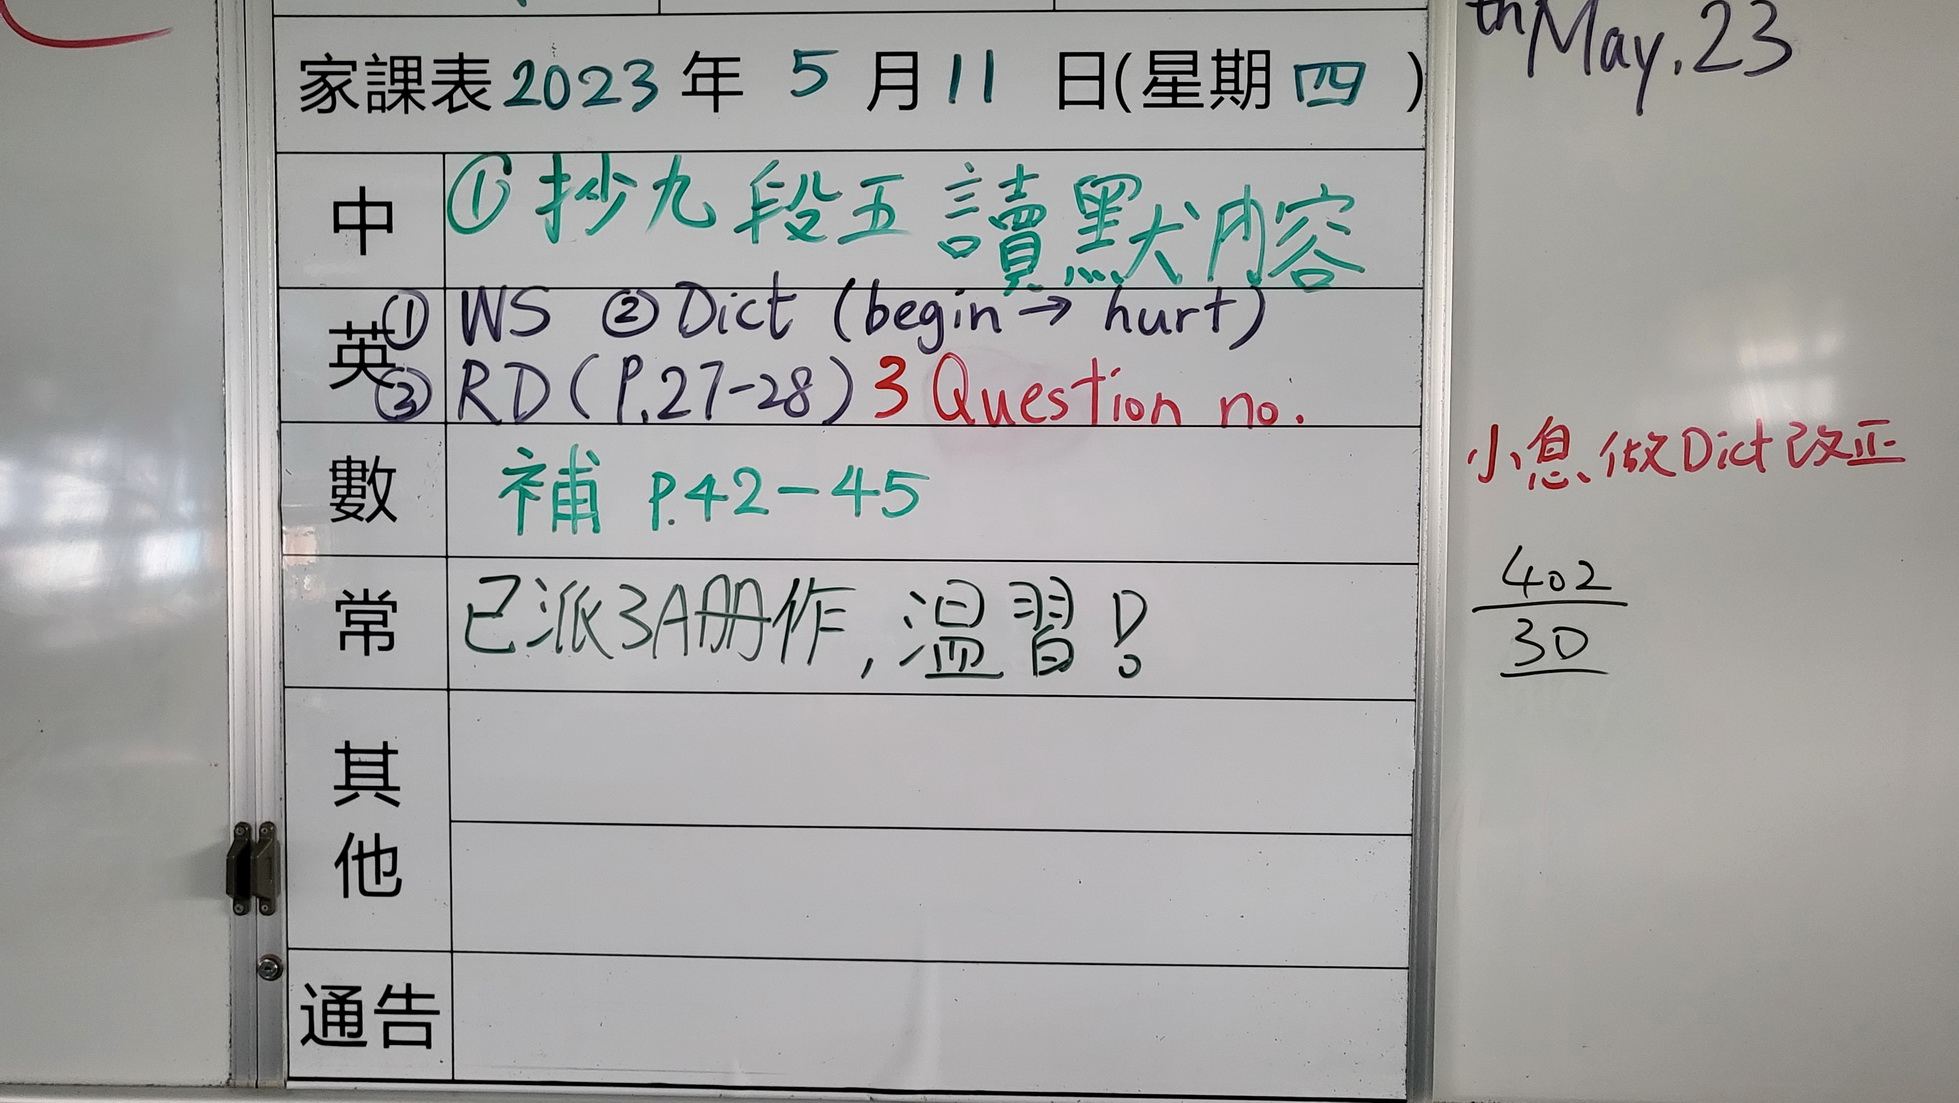 th May. 23
家課表 2023 年 5 月 11 日(星期 四 )
中 ① 抄九段五讀默內容
英 ① WS ② Dict (begin → hurt)
③ RD (P.27-28) 3 Question no.
數 補 P.42-45
常 已派3A冊作,溫習!
其他
通告
小息做Dict改正
402
30